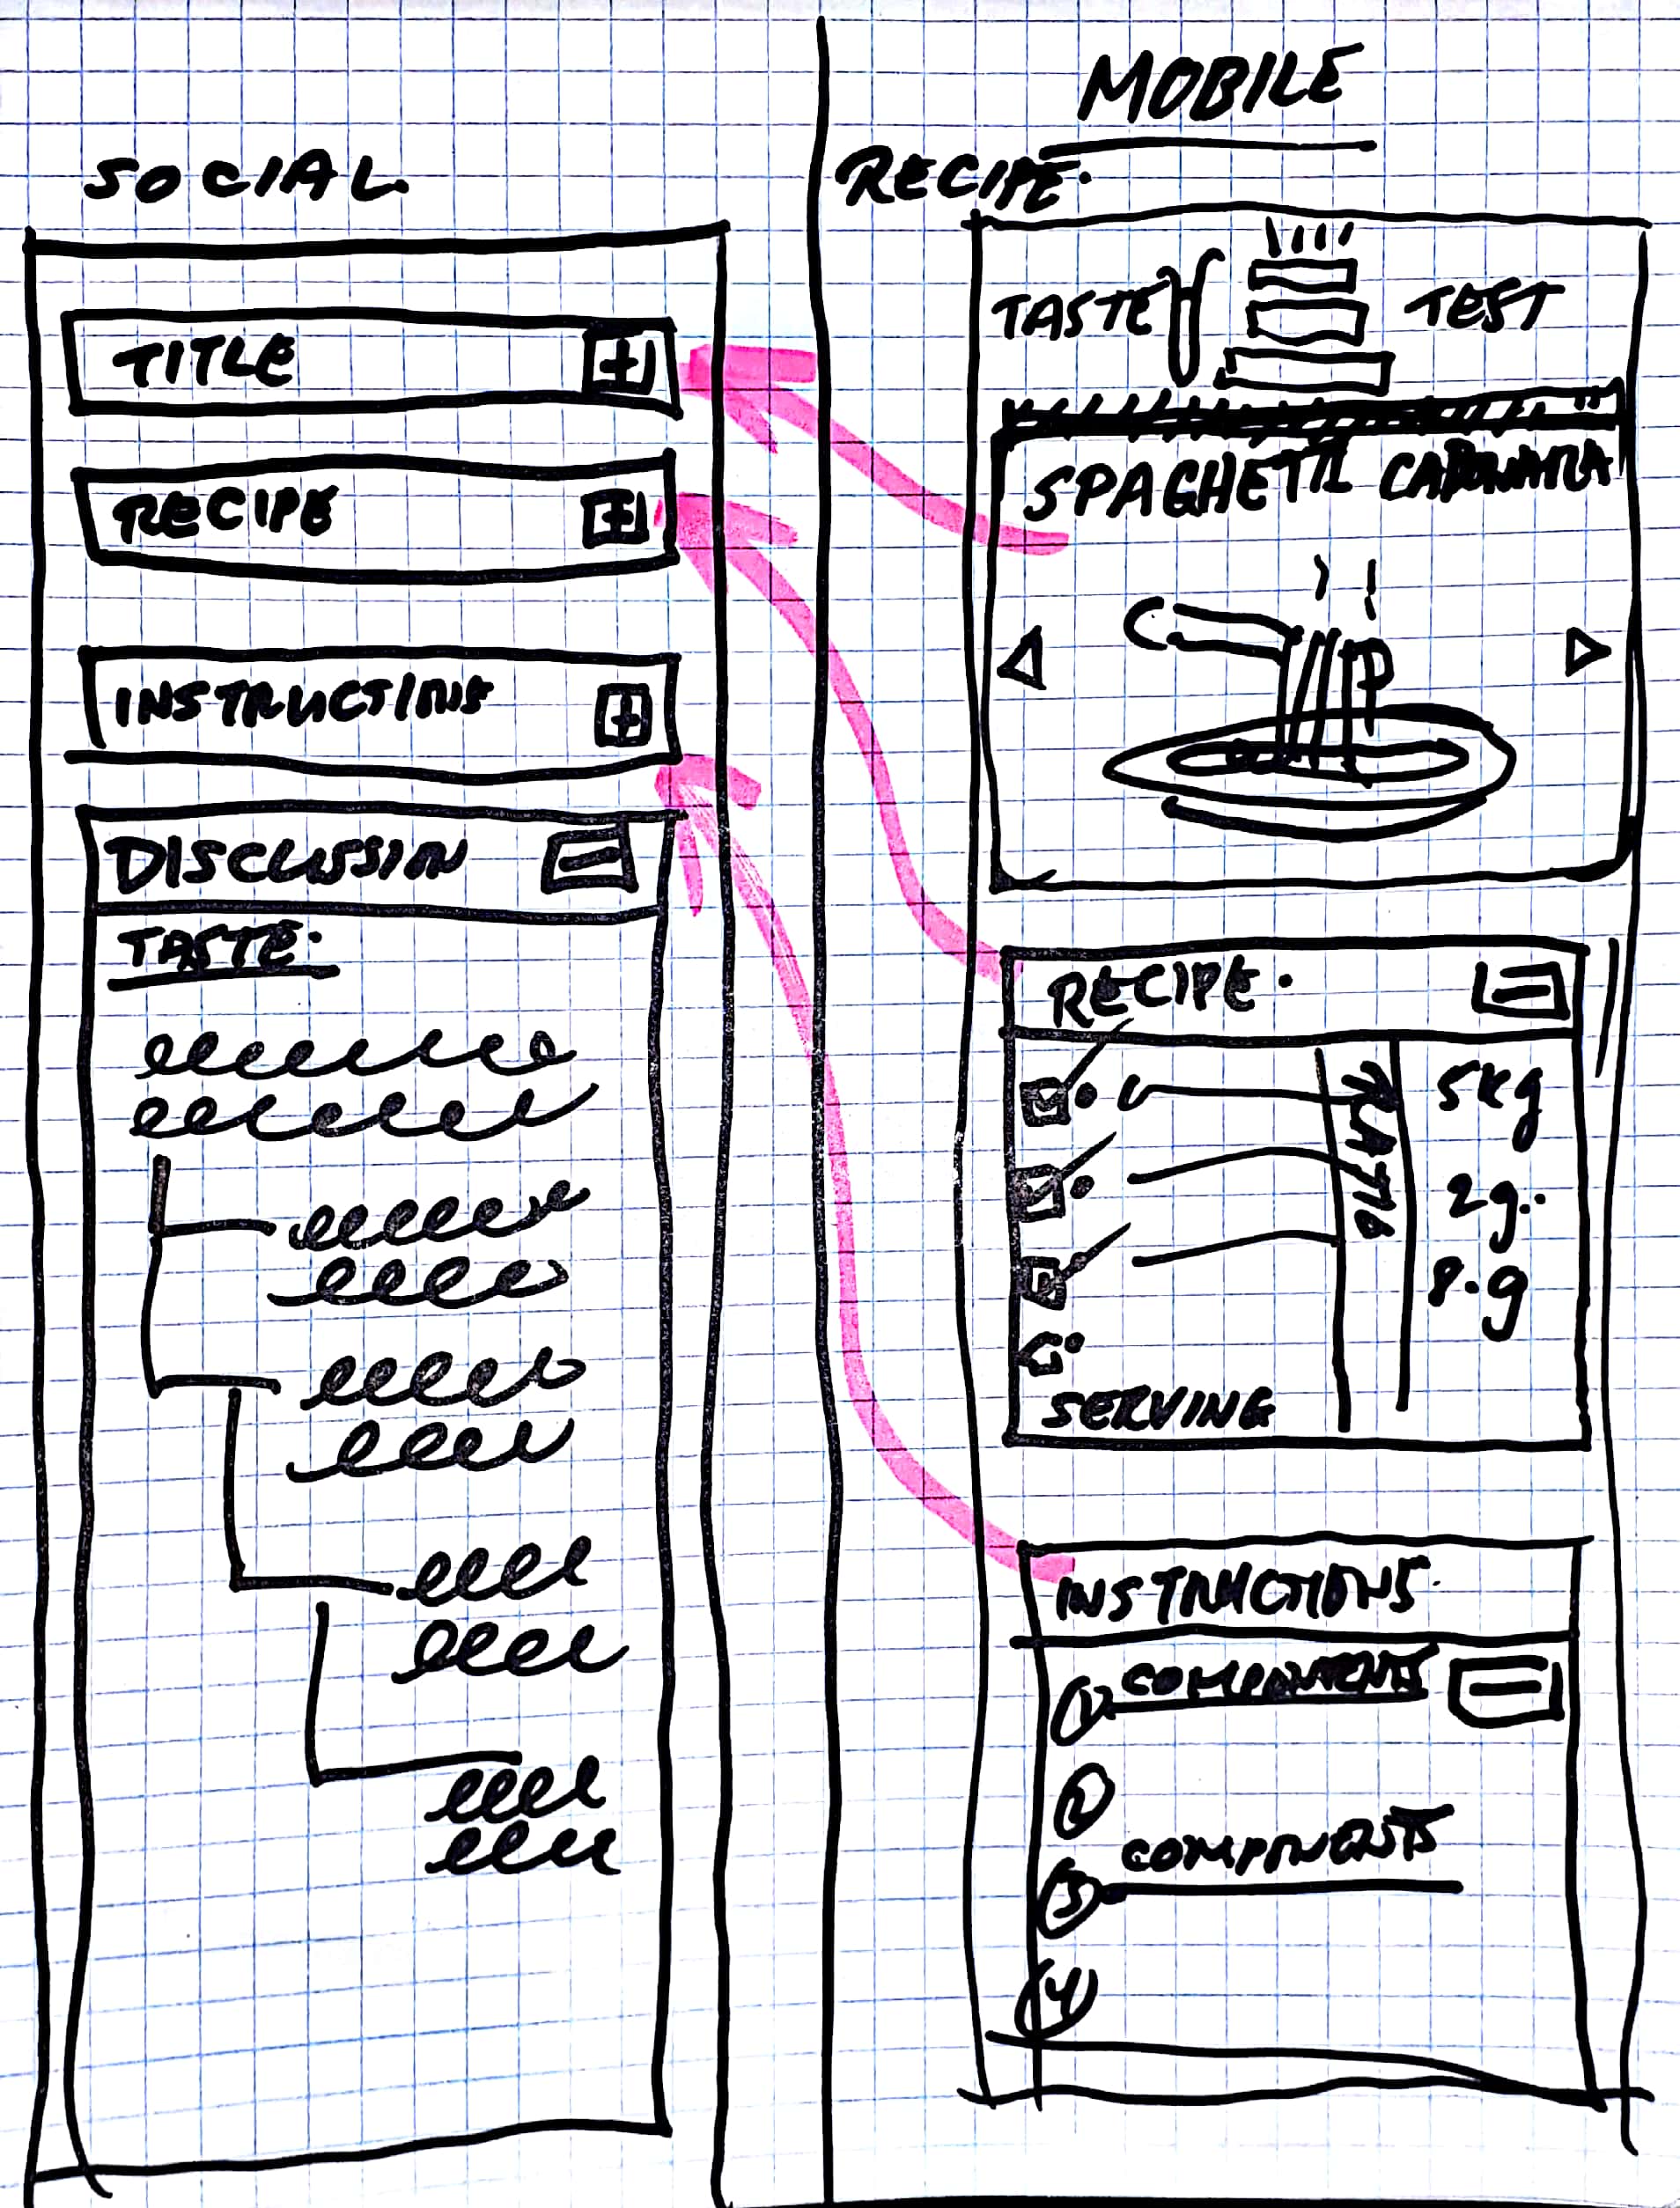 MOBILE
SOCIAL
TITLE
RECIPE
INSTRUCTIONS
DISCUSSION
TASTE
RECIPE
TASTE TEST
SPAGHETTI CARBONARA
RECIPE
RATIO
5kg
2g.
8.g
SERVING
INSTRUCTIONS
1 COMPONENTS
2
3 COMPONENTS
4